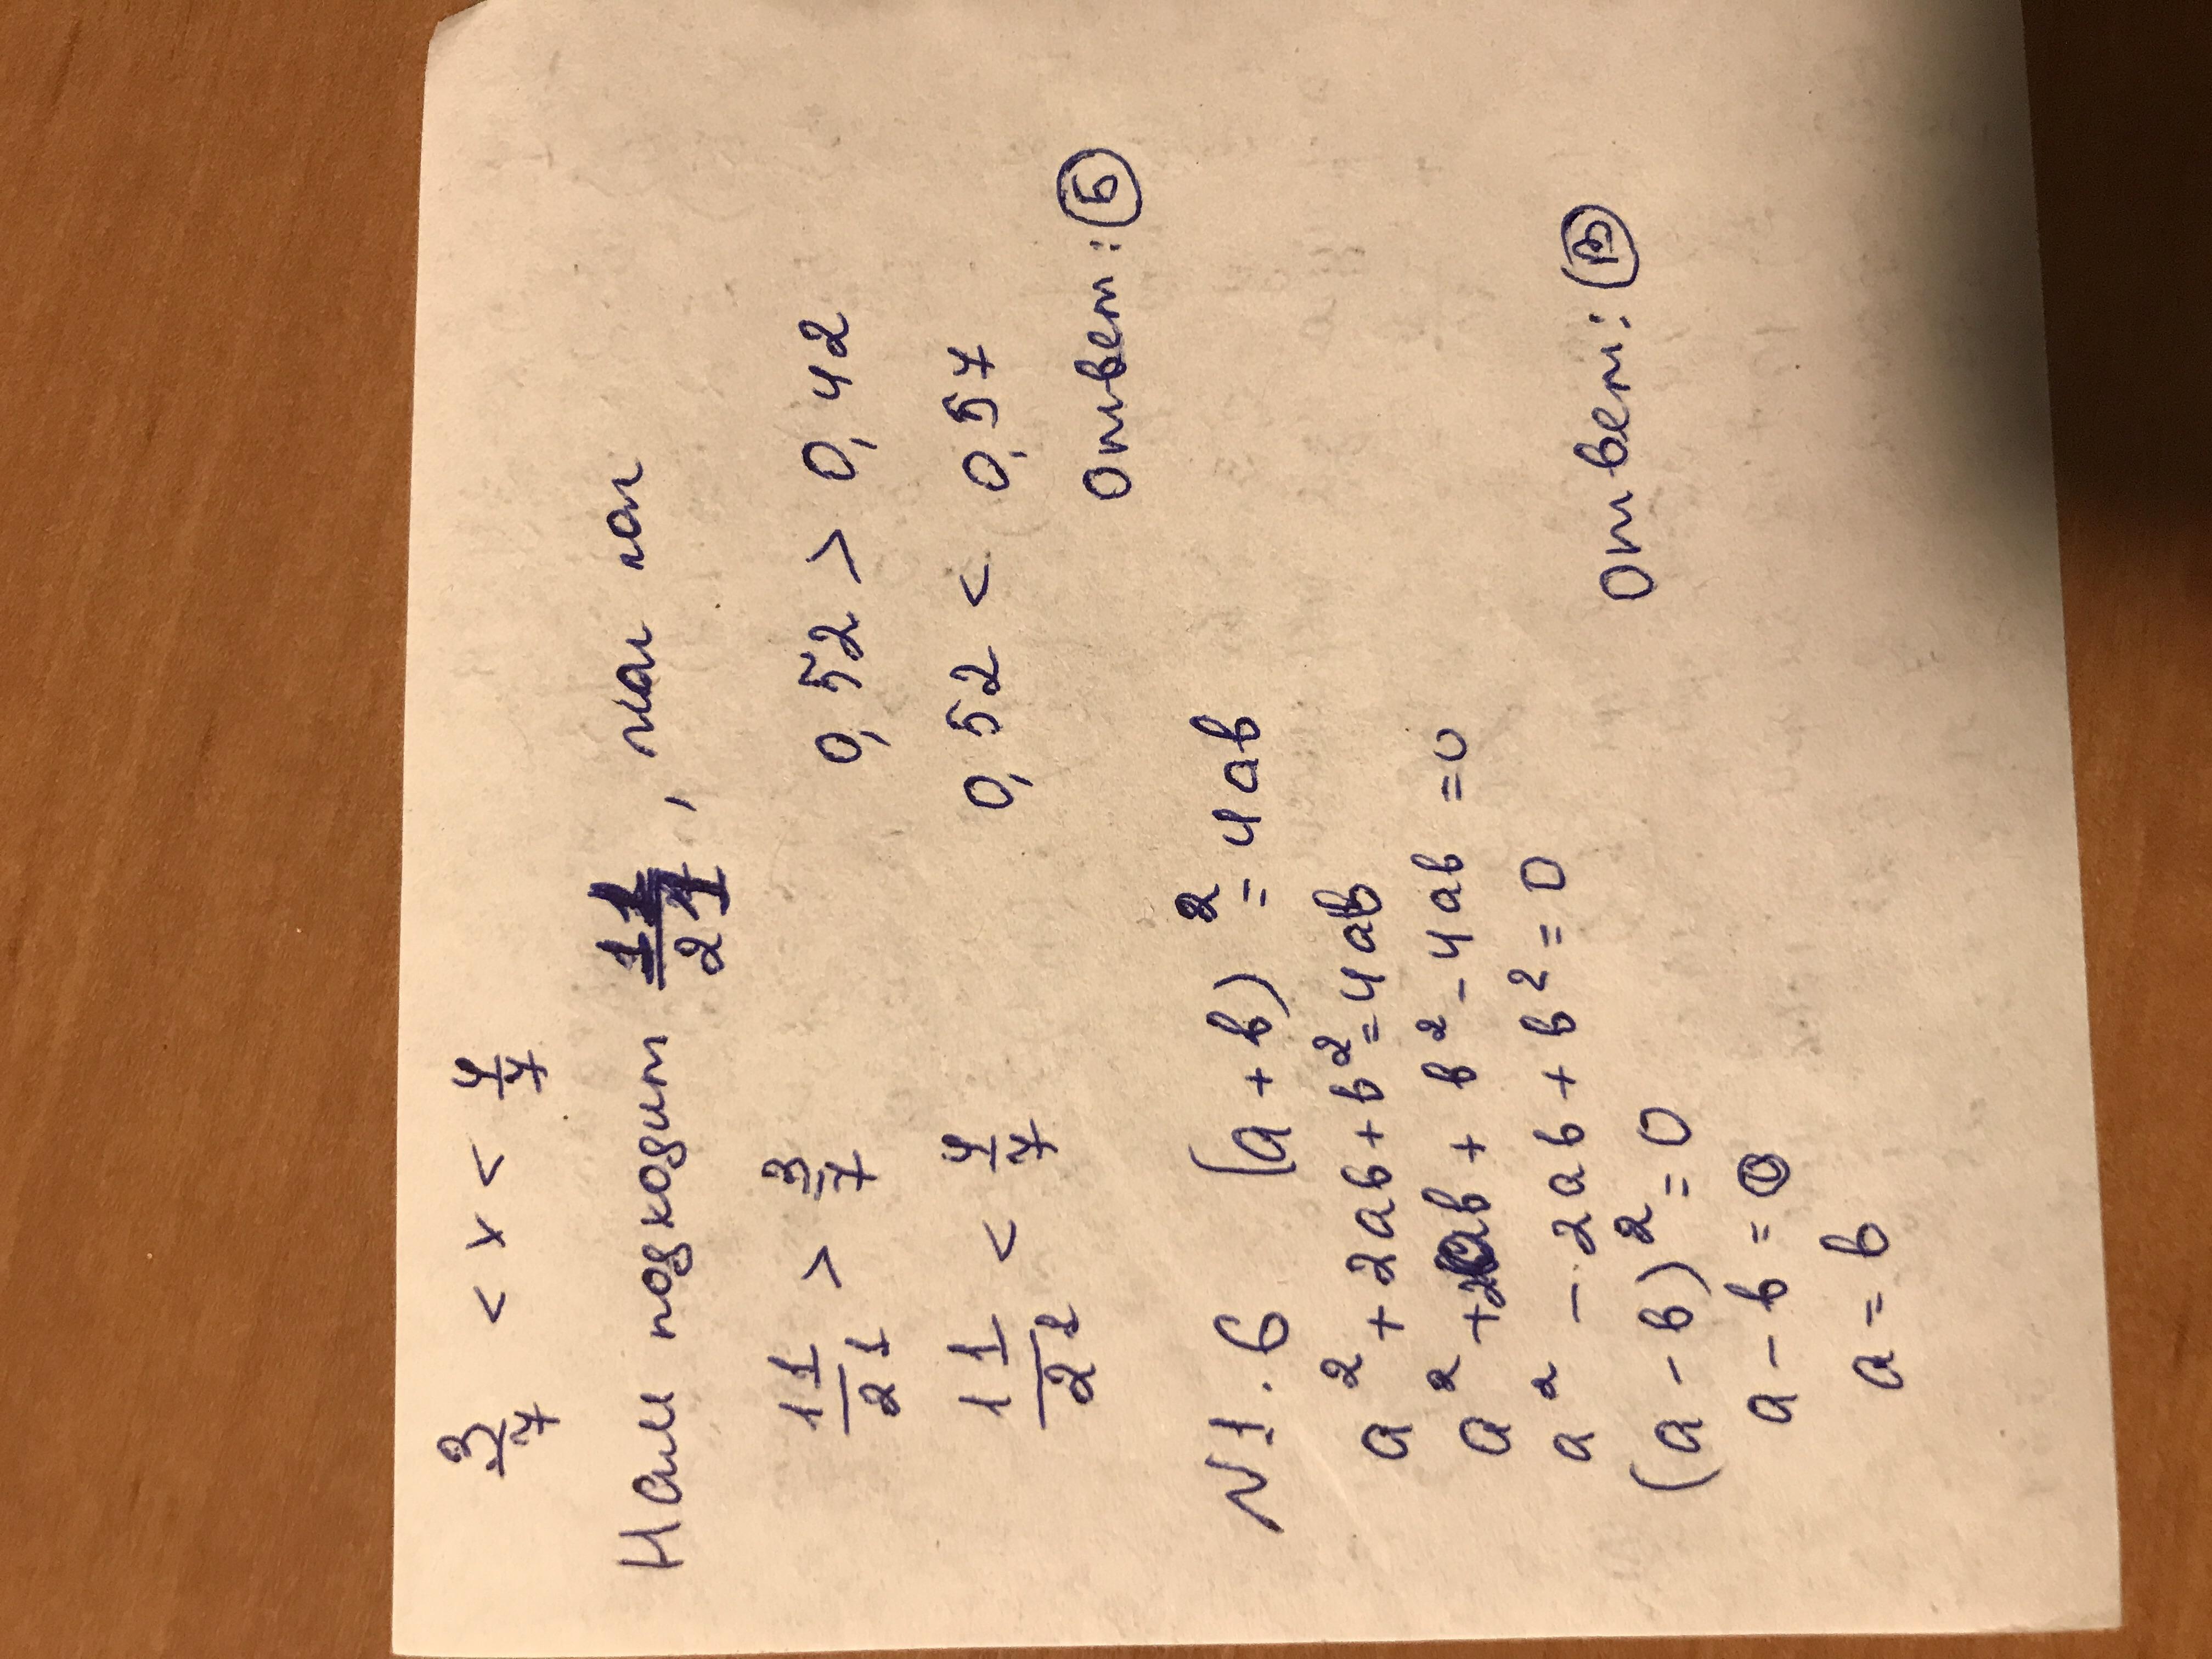 3/7 < x < 4/7
Нам подходит 11/21, так как
11/21 > 3/7 0,52 > 0,42
11/21 < 4/7 0,52 < 0,57
Ответ: Б
N1.6 (a+b)² = 4ab
a² + 2ab + b² = 4ab
a² + 2ab + b² - 4ab = 0
a² - 2ab + b² = 0
(a - b)² = 0
Ответ: В
a - b = 0
a = b